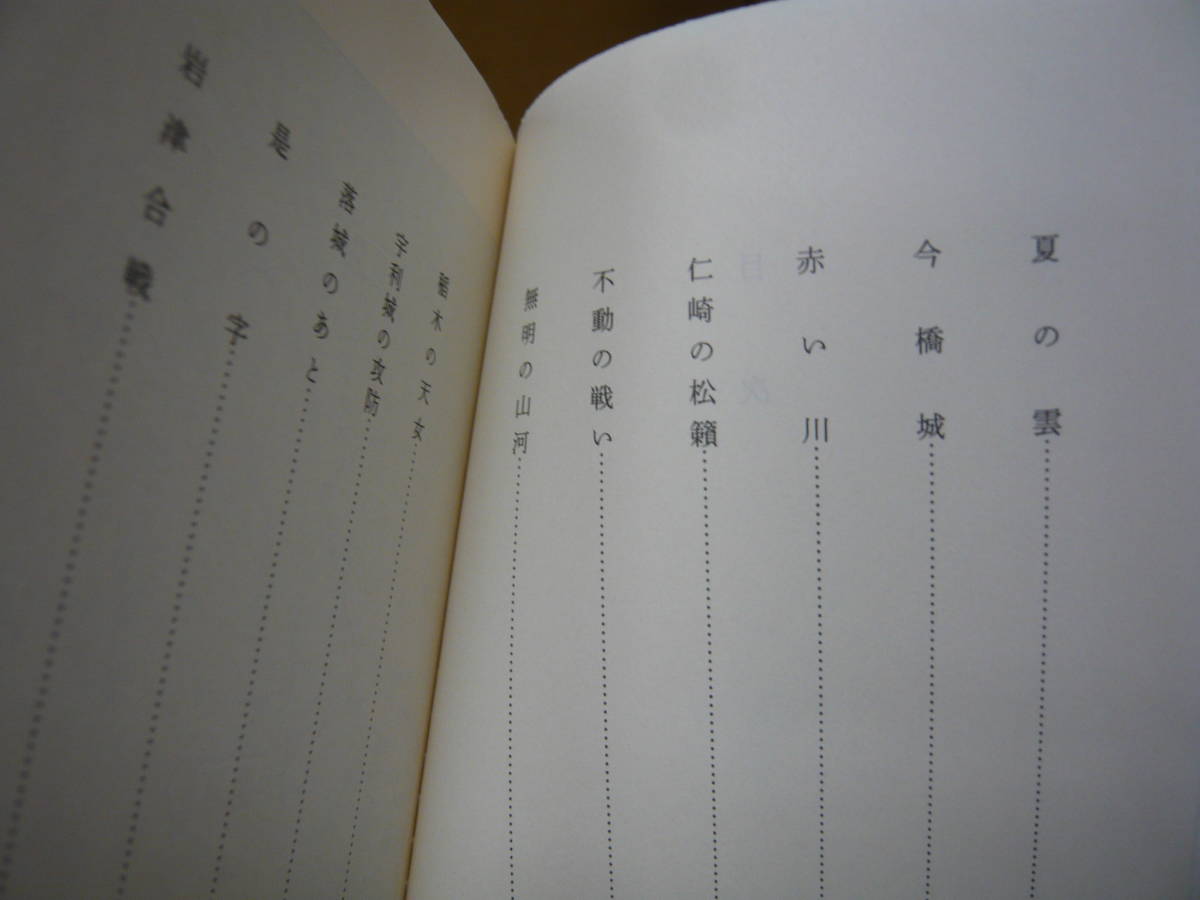 夏の雲
今橋城
赤い川
仁崎の松籟
不動の戦い
無明の山河
稲木の天女
宇利城の攻防
落城のあと
是の字
岩津合戦
目次